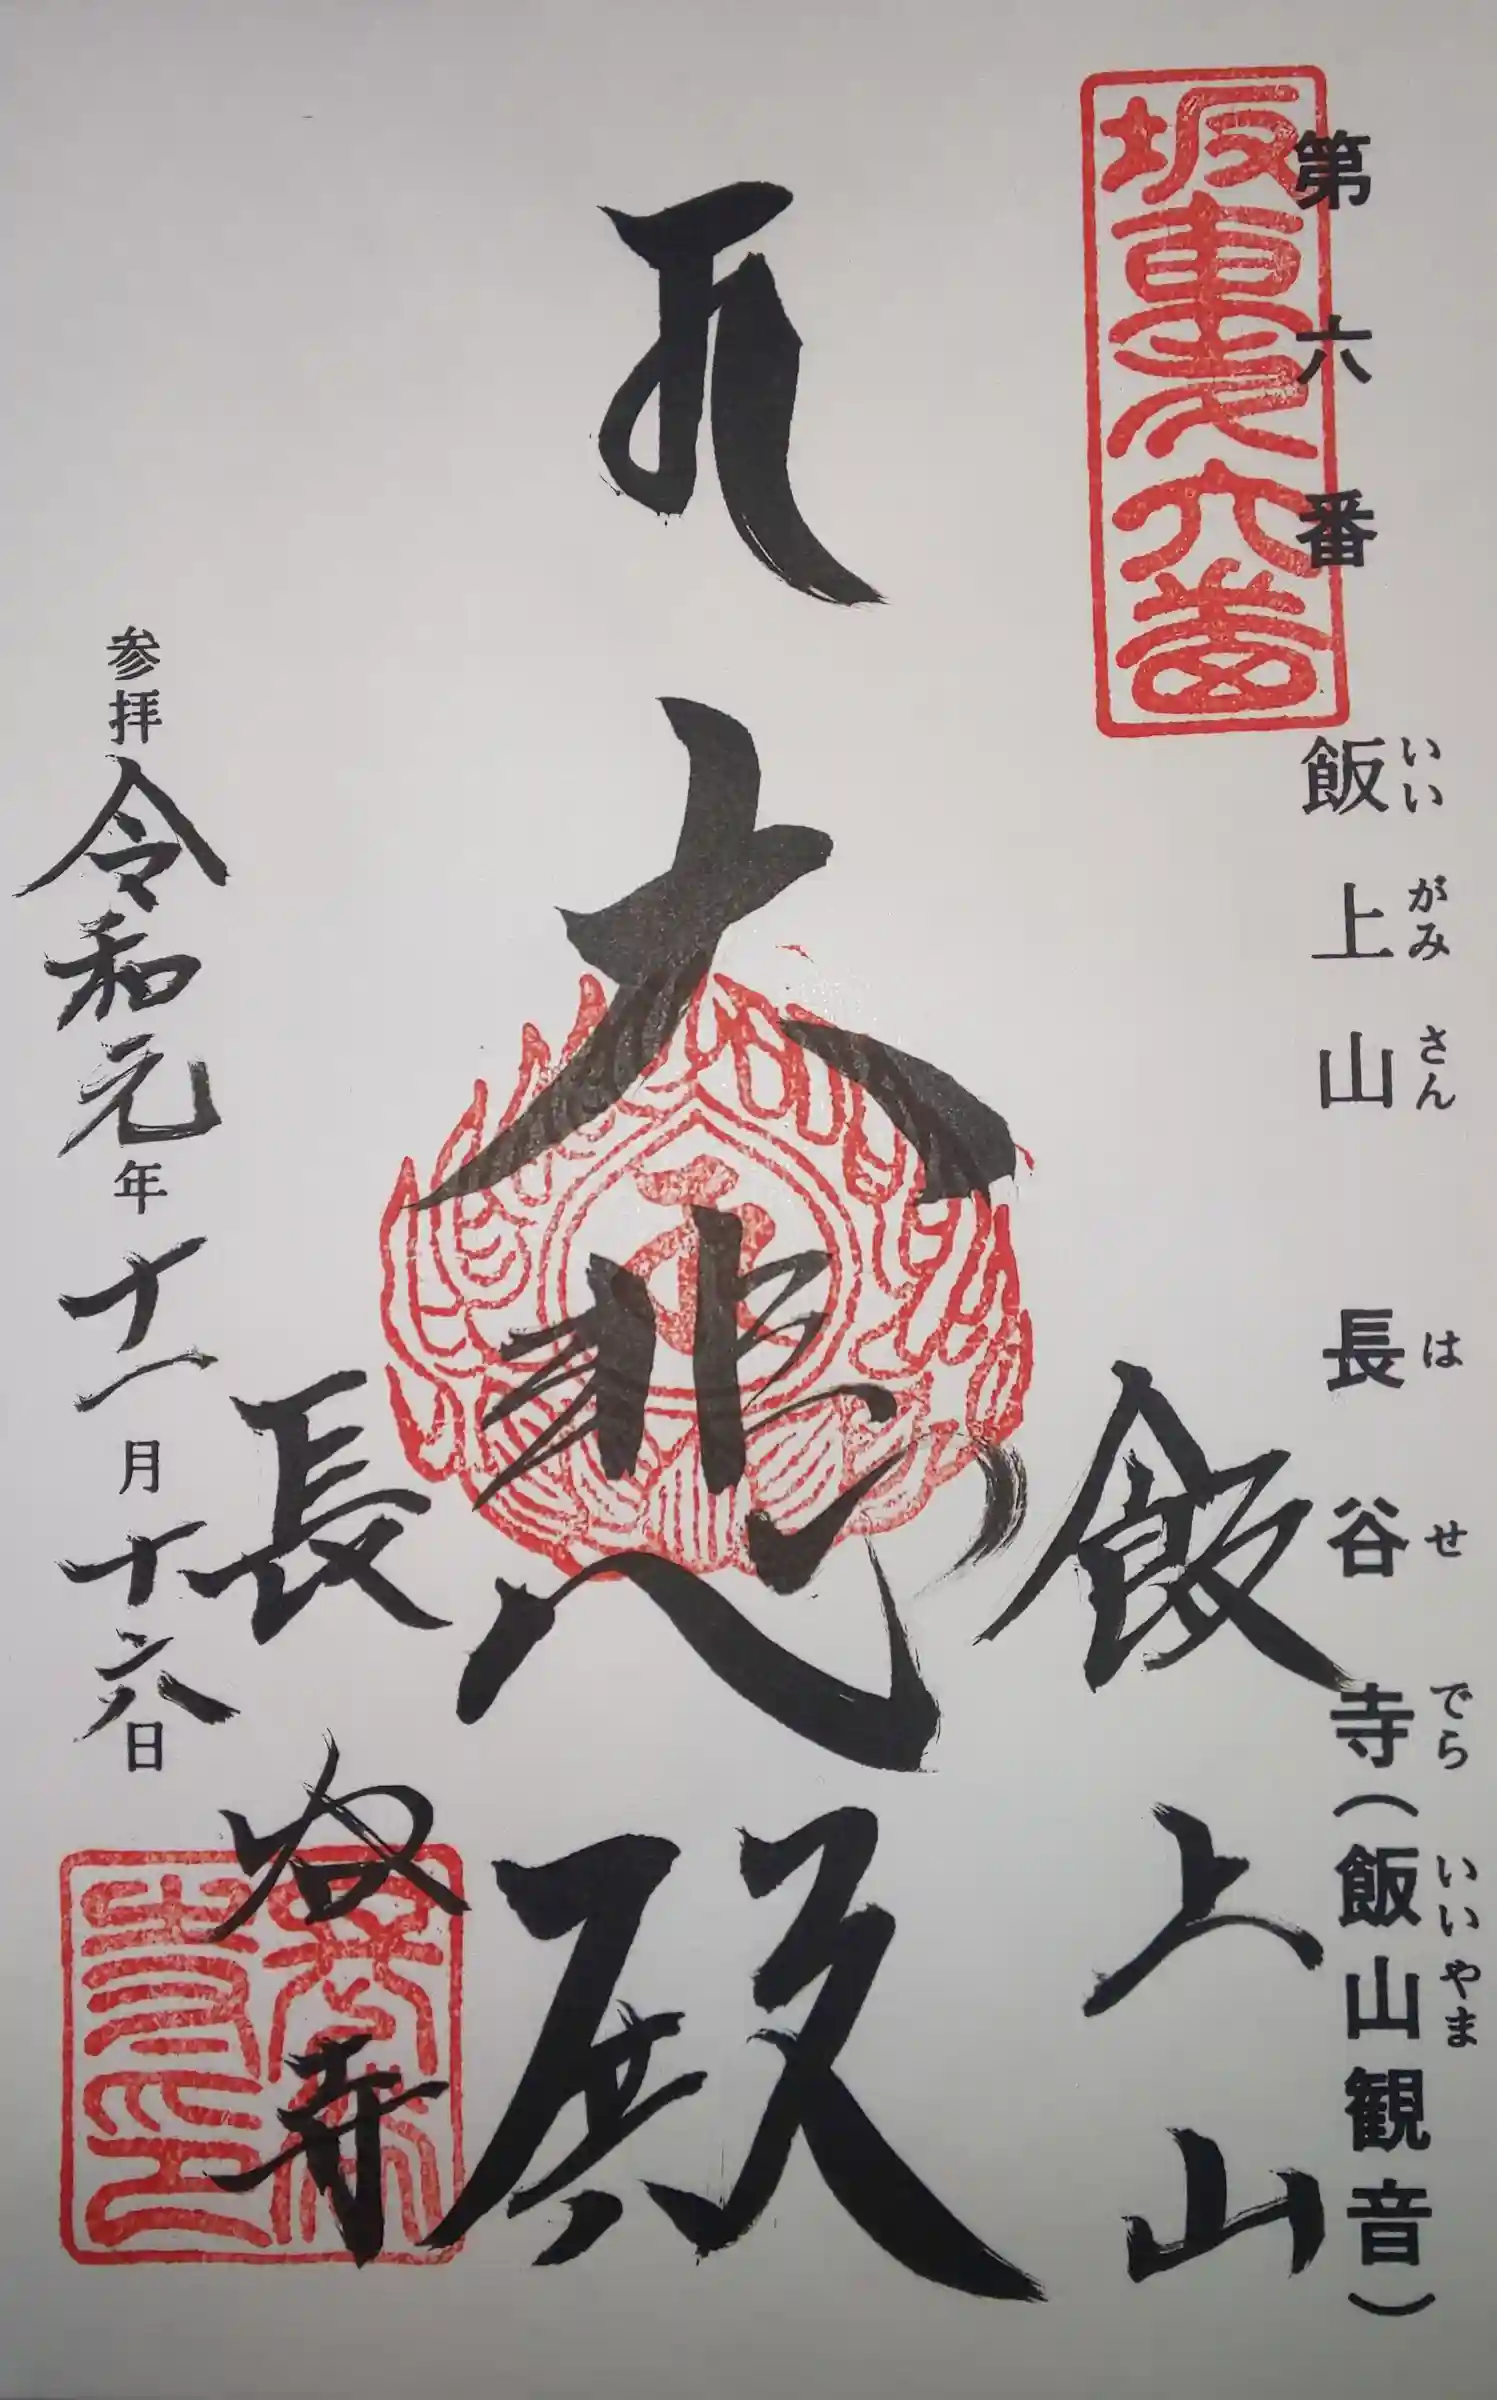 坂東第六番
第六番
飯上山 長谷寺(飯山観音)
いいがみさん はせでら いいやま
飯上山
大悲殿
長谷寺
参拝 令和元年十一月十六日